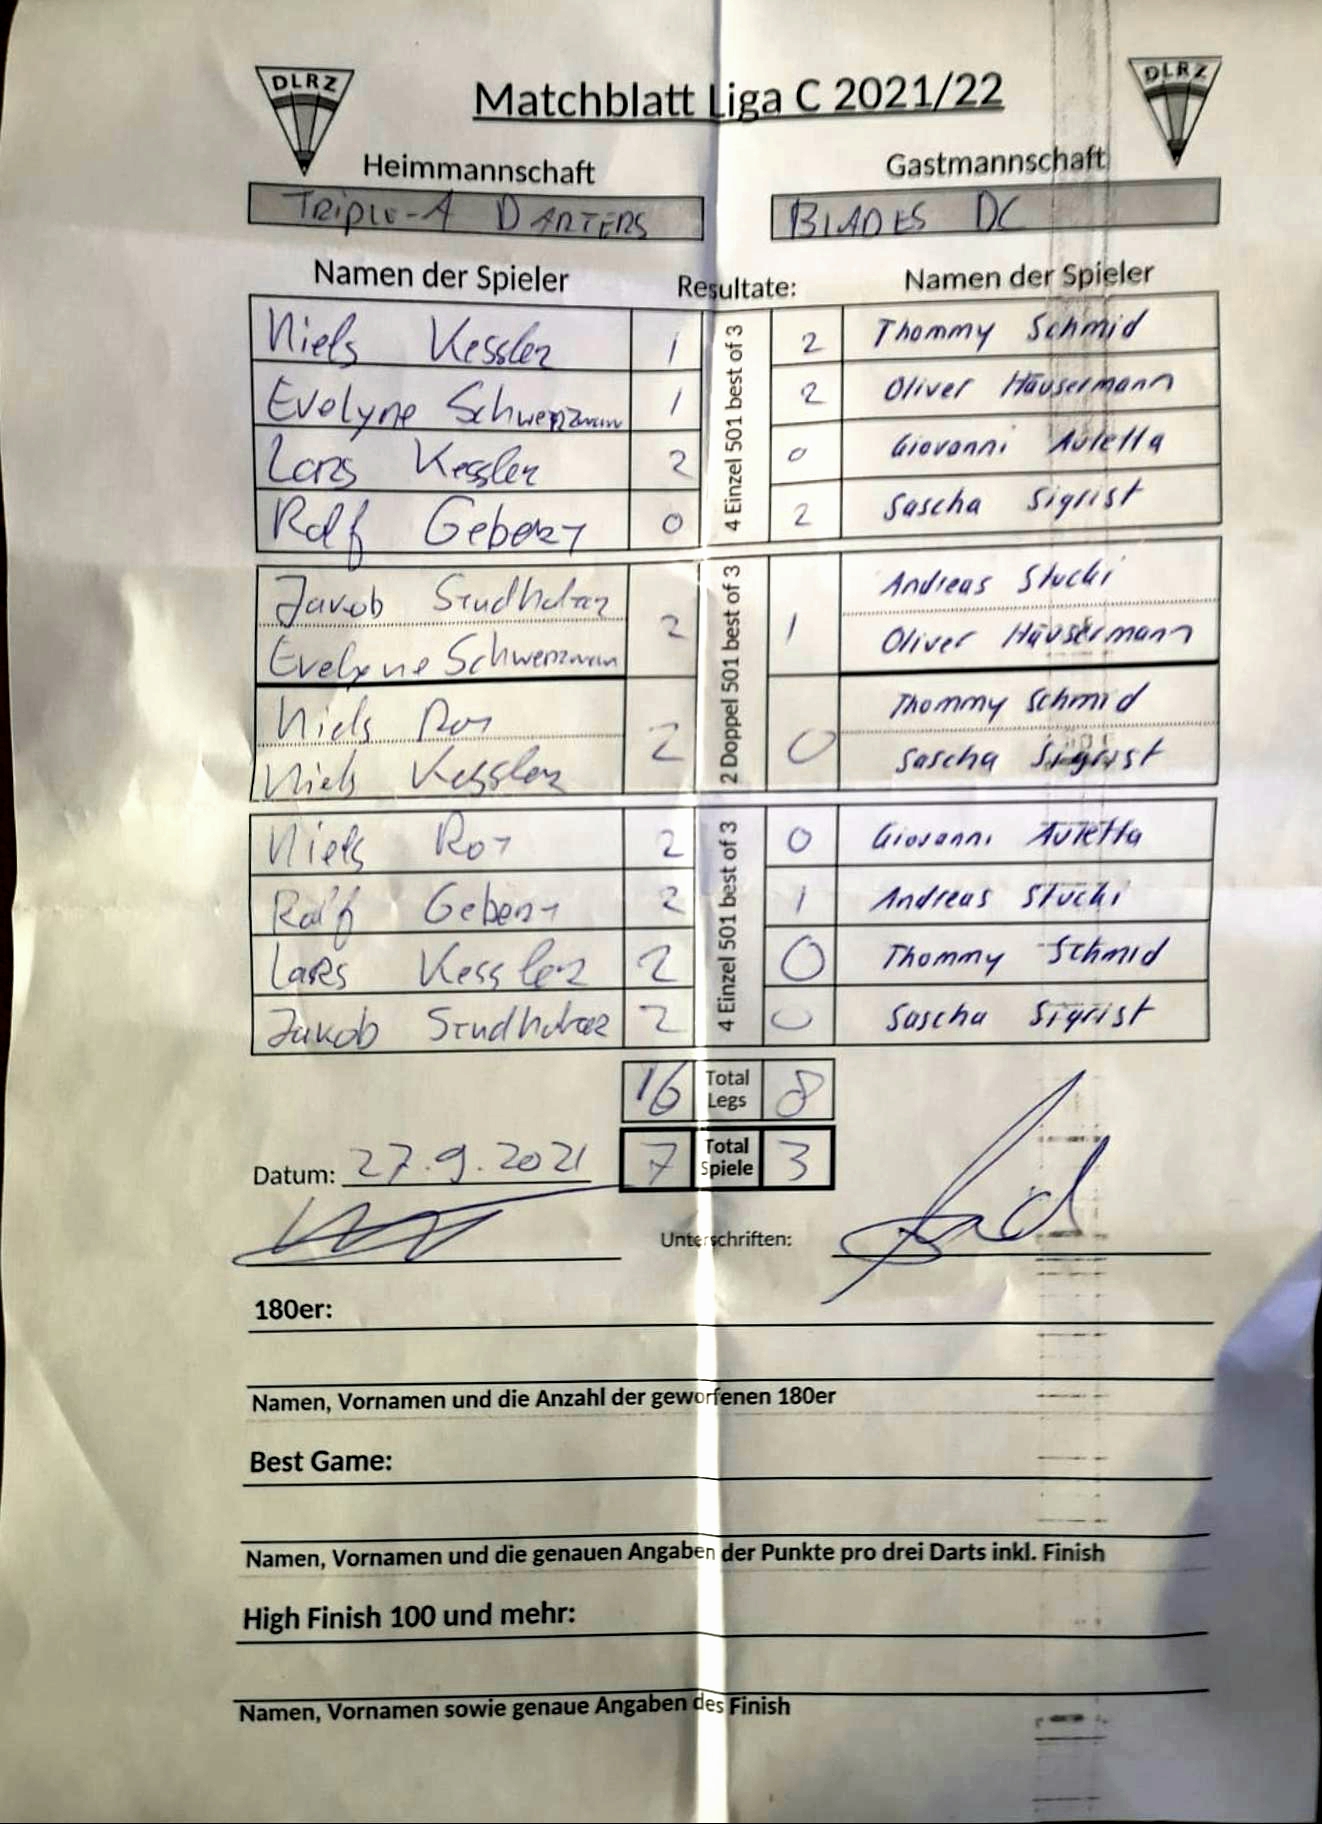 DLRZ Matchblatt Liga C 2021/22 DLRZ
Heimmannschaft Gastmannschaft
Triple-A Darters BLADES DC
Namen der Spieler Resultate: Namen der Spieler
4 Einzel 501 best of 3
Niels Kessler 1 2 Thommy Schmid
Evelyne Schwenzmann 1 2 Oliver Häusermann
Lars Kessler 2 0 Giovanni Auletta
Ralf Gebert 0 2 Sascha Sigrist
2 Doppel 501 best of 3
Jakob Studhalter 2 1 Andreas Stucki
Evelyne Schwenzmann Oliver Häusermann
Niels Rot 2 0 Thommy Schmid
Niels Kessler Sascha Sigrist
4 Einzel 501 best of 3
Niels Rot 2 0 Giovanni Auletta
Ralf Gebert 2 1 Andreas Stucki
Lars Kessler 2 0 Thommy Schmid
Jakob Studhalter 2 0 Sascha Sigrist
16 Total Legs 8
Datum: 27.9.2021 7 Total Spiele 3
Unterschriften:
180er:
Namen, Vornamen und die Anzahl der geworfenen 180er
Best Game:
Namen, Vornamen und die genauen Angaben der Punkte pro drei Darts inkl. Finish
High Finish 100 und mehr:
Namen, Vornamen sowie genaue Angaben des Finish